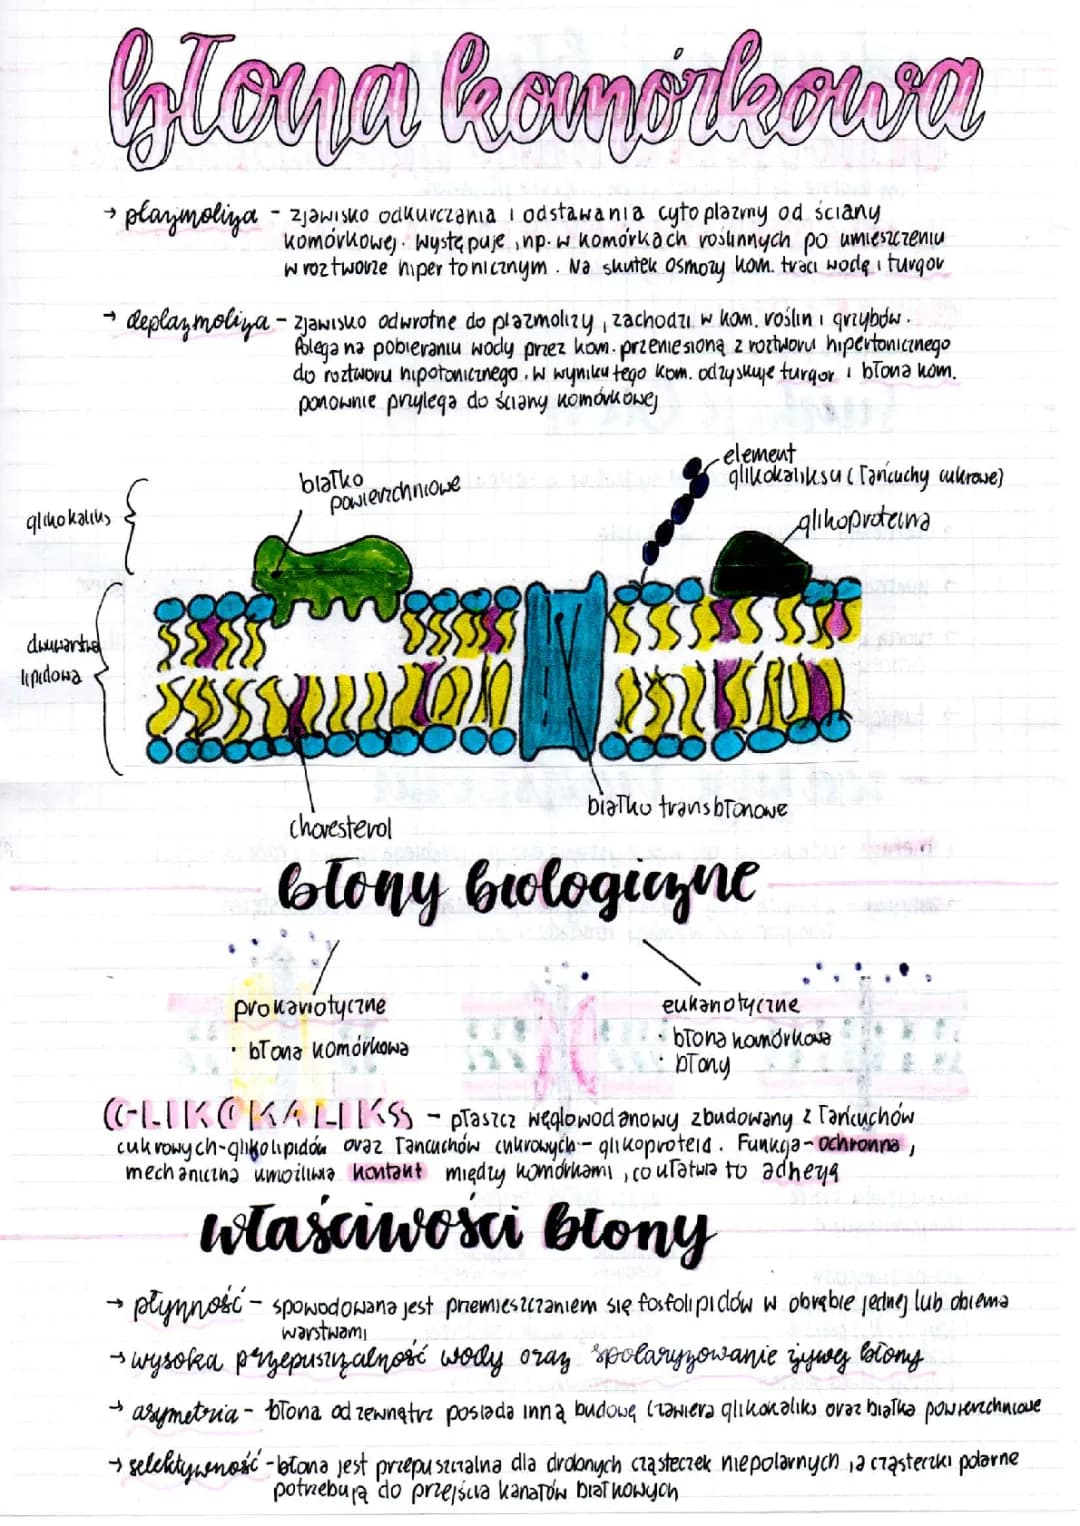 błona komórkowa
→ plazmoliza - zjawisko odkurczania i odstawania cytoplazmy od ściany
komórkowej. Występuje, np. w komórkach roślinnych po umieszczeniu
w roztworze hipertonicznym. Na skutek osmozy kom. traci wodę i turgor
→ deplazmoliza - zjawisko odwrotne do plazmolizy, zachodzi w kom. roślin i grzybów.
Polega na pobieraniu wody przez kom. przeniesioną z roztworu hipertonicznego
do roztworu hipotonicznego. W wyniku tego kom. odzyskuje turgor i błona kom.
ponownie przylega do ściany komórkowej
element
glikokaliksu (łańcuchy cukrowe)
białko
powierzchniowe
glikokaliks
glikoproteina
dwuwarstwa
lipidowa
białko transbłonowe
choresterol
błony biologiczne
prokariotyczne
• błona komórkowa
eukariotyczne
• błona komórkowa
• błony
GLIKOKALIKS - płaszcz węglowodanowy zbudowany z łańcuchów
cukrowych-glikolipidów oraz łancuchów cukrowych - glikoproteid. Funkcja - ochronna,
mechaniczna umożliwia kontakt między komórkami, co ułatwia to adhezją
właściwości błony
→ płynność - spowodowana jest przemieszczaniem się fosfolipidów w obrębie jednej lub obiema
warstwami
→ wysoka przepuszczalność wody oraz spolaryzowanie żywej błony
→ asymetria - błona od zewnątrz posiada inną budowę (zawiera glikokaliks oraz białka powierzchniowe
→ selektywność - błona jest przepuszczalna dla drobnych cząsteczek niepolarnych, a cząsteczki polarne
potrzebują do przejścia kanałów białkowych